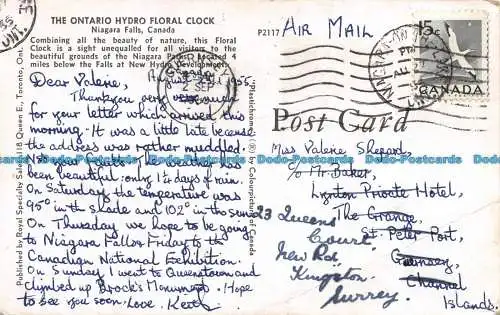 THE ONTARIO HYDRO FLORAL CLOCK
Niagara Falls, Canada
Combining all the beauty of nature, this Floral
Clock is a sight unequalled for all visitors to the
beautiful grounds of the Niagara Parks. Located 4
miles below the Falls at New Hydro Development.
P2117
AIR MAIL
15c
CANADA
Post Card
Dear Valerie,
August 31st 1955
Thankyou very much
for your letter which arrived this
morning. It was a little late because
the address was rather muddled.
weather has
been beautiful: only 1½ days of rain.
On Saturday the temperature was
95° in the shade and 102° in the sun.
On Thursday we hope to be going
to Niagara Falls: Friday to the
Canadian National Exhibition.
On Sunday I went to Queenstown and
climbed up Brock's Monument. Hope
to see you soon. Love, Keith
Miss Valerie Shepard,
c/o Mr. Baker,
Lynton Private Hotel,
The Grange,
St. Peter Port,
Guernsey,
Channel
Islands.
23 Queens
Court,
New Rd,
Kingston,
Surrey.
Published by Royal Specialty Sales, 118 Queen E., Toronto, Ont.
"Plastichrome" ® by Colourpicture
Canada
Dodo-Postcards